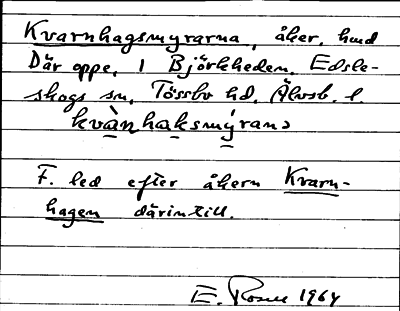 Kvarnhagsmyrarna, åker, hmd
Där oppe, 1 Björkheden, Edsle-
skogs sn, Tössbo hd, Älvsb. l.
kvànhaksmýrana
F. led efter åkern Kvarn-
hagen därintill.
E. Rosén 1964